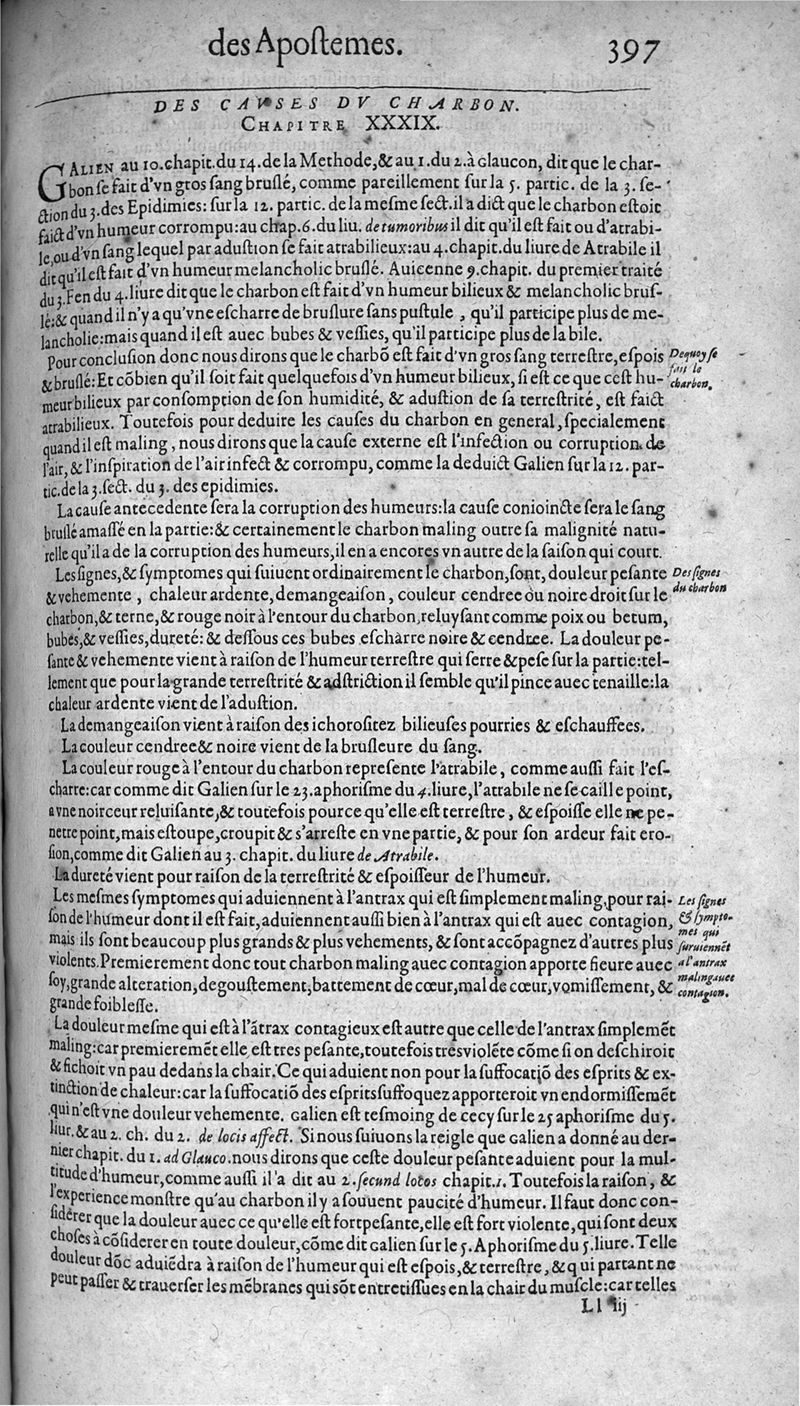 des Apoſtemes. 397
DES CAVSES DV CHARBON.
CHAPITRE XXXIX.
GALIEN au 10.chapit.du 14.de la Methode,& au 1.du 2.à Glaucon, dit que le char-
bon ſe fait d'vn gros ſang bruſlé, comme pareillement ſur la 5. partic. de la 3. ſe-
ction du 3.des Epidimies: ſur la 12. partic. de la meſme ſect.il a dict que le charbon eſtoit
faict d'vn humeur corrompu:au chap.6.du liu. de tumoribus il dit qu'il eſt fait ou d'atrabi-
le,ou d'vn ſang lequel par aduſtion ſe fait atrabilieux:au 4.chapit.du liure de Atrabile il
dit qu'il eſt fait d'vn humeur melancholic bruſlé. Auicenne 9.chapit. du premier traité
du 3.Fen du 4.liure dit que le charbon eſt fait d'vn humeur bilieux & melancholic bruſ-
lé:& quand il n'y a qu'vne eſcharre de bruſlure ſans puſtule , qu'il participe plus de me-
lancholie:mais quand il eſt auec bubes & veſſies, qu'il participe plus de la bile.
Pour concluſion donc nous dirons que le charbõ eſt fait d'vn gros ſang terreſtre,eſpois
Dequoy ſe
fait le
charbon.
& bruſlé:Et cõbien qu'il ſoit fait quelquefois d'vn humeur bilieux, ſi eſt ce que ceſt hu-
meur bilieux par conſomption de ſon humidité, & aduſtion de ſa terreſtrité, eſt faict
atrabilieux. Toutefois pour deduire les cauſes du charbon en general, ſpecialement
quand il eſt maling , nous dirons que la cauſe externe eſt l'infection ou corruption de
l'air, & l'inſpiration de l'air infect & corrompu, comme la deduict Galien ſur la 12. par-
tic.de la 3.ſect. du 3. des epidimies.
La cauſe antecedente ſera la corruption des humeurs:la cauſe conioincte ſera le ſang
bruſlé amaſſé en la partie:& certainement le charbon maling outre ſa malignité natu-
relle qu'il a de la corruption des humeurs,il en a encores vn autre de la ſaiſon qui court.
Les ſignes,& ſymptomes qui ſuiuent ordinairement le charbon,ſont, douleur peſante
Des ſignes
du charbon
& vehemente , chaleur ardente,demangeaiſon, couleur cendree ou noire droit ſur le
charbon,& terne,& rouge noir à l'entour du charbon,reluyſant comme poix ou betum,
bubes,& veſſies,dureté: & deſſous ces bubes eſcharre noire & cendree. La douleur pe-
ſante & vehemente vient à raiſon de l'humeur terreſtre qui ſerre & peſe ſur la partie:tel-
lement que pour la grande terreſtrité & adſtriction il ſemble qu'il pince auec tenaille:la
chaleur ardente vient de l'aduſtion.
La demangeaiſon vient à raiſon des ichoroſitez bilieuſes pourries & eſchauffees.
La couleur cendree & noire vient de la bruſleure du ſang.
La couleur rouge à l'entour du charbon repreſente l'atrabile, comme auſſi fait l'eſ-
charre:car comme dit Galien ſur le 23.aphoriſme du 4.liure,l'atrabile ne ſe caille point,
a vne noirceur reluiſante,& toutefois pource qu'elle eſt terreſtre, & eſpoiſſe elle ne pe-
netre point,mais eſtoupe,croupit & s'arreſte en vne partie, & pour ſon ardeur fait ero-
ſion,comme dit Galien au 3. chapit. du liure de Atrabile.
La dureté vient pour raiſon de la terreſtrité & eſpoiſſeur de l'humeur.
Les meſmes ſymptomes qui aduiennent à l'antrax qui eſt ſimplement maling,pour rai-
Les ſignes
& ſympto-
mes qui
ſuruiennẽt
a l'antrax
maling auec
contagion.
ſon de l'humeur dont il eſt fait,aduiennent auſſi bien à l'antrax qui eſt auec contagion,
mais ils ſont beaucoup plus grands & plus vehements, & ſont accõpagnez d'autres plus
violents.Premierement donc tout charbon maling auec contagion apporte fieure auec
ſoy,grande alteration,degouſtement,battement de cœur,mal de cœur,vomiſſement, &
grande foibleſſe.
La douleur meſme qui eſt à l'ãtrax contagieux eſt autre que celle de l'antrax ſimplemẽt
maling:car premieremẽt elle eſt tres peſante,toutefois tres violẽte cõme ſi on deſchiroit
& fichoit vn pau dedans la chair.Ce qui aduient non pour la ſuffocatiõ des eſprits & ex-
tinction de chaleur:car la ſuffocatiõ des eſprits ſuffoquez apporteroit vn endormiſſemẽt
qui n'eſt vne douleur vehemente. Galien eſt teſmoing de cecy ſur le 25 aphoriſme du 5.
liur.& au 2. ch. du 2. de locis affect. Si nous ſuiuons la reigle que Galien a donné au der-
nier chapit. du 1.ad Glauco.nous dirons que ceſte douleur peſante aduient pour la mul-
titude d'humeur,comme auſſi il l'a dit au 2.ſecund locos chapit.1. Toutefois la raiſon, &
l'experience monſtre qu'au charbon il y a ſouuent paucité d'humeur. Il faut donc con-
ſiderer que la douleur auec ce qu'elle eſt fort peſante,elle eſt fort violente,qui ſont deux
choſes à cõſiderer en toute douleur,cõme dit Galien ſur le 5.Aphoriſme du 5.liure.Telle
douleur dõc aduiẽdra à raiſon de l'humeur qui eſt eſpois,& terreſtre, & qui partant ne
peut paſſer & trauerſer les mẽbranes qui sõt entretiſſues en la chair du muſcle:car telles
Ll iij